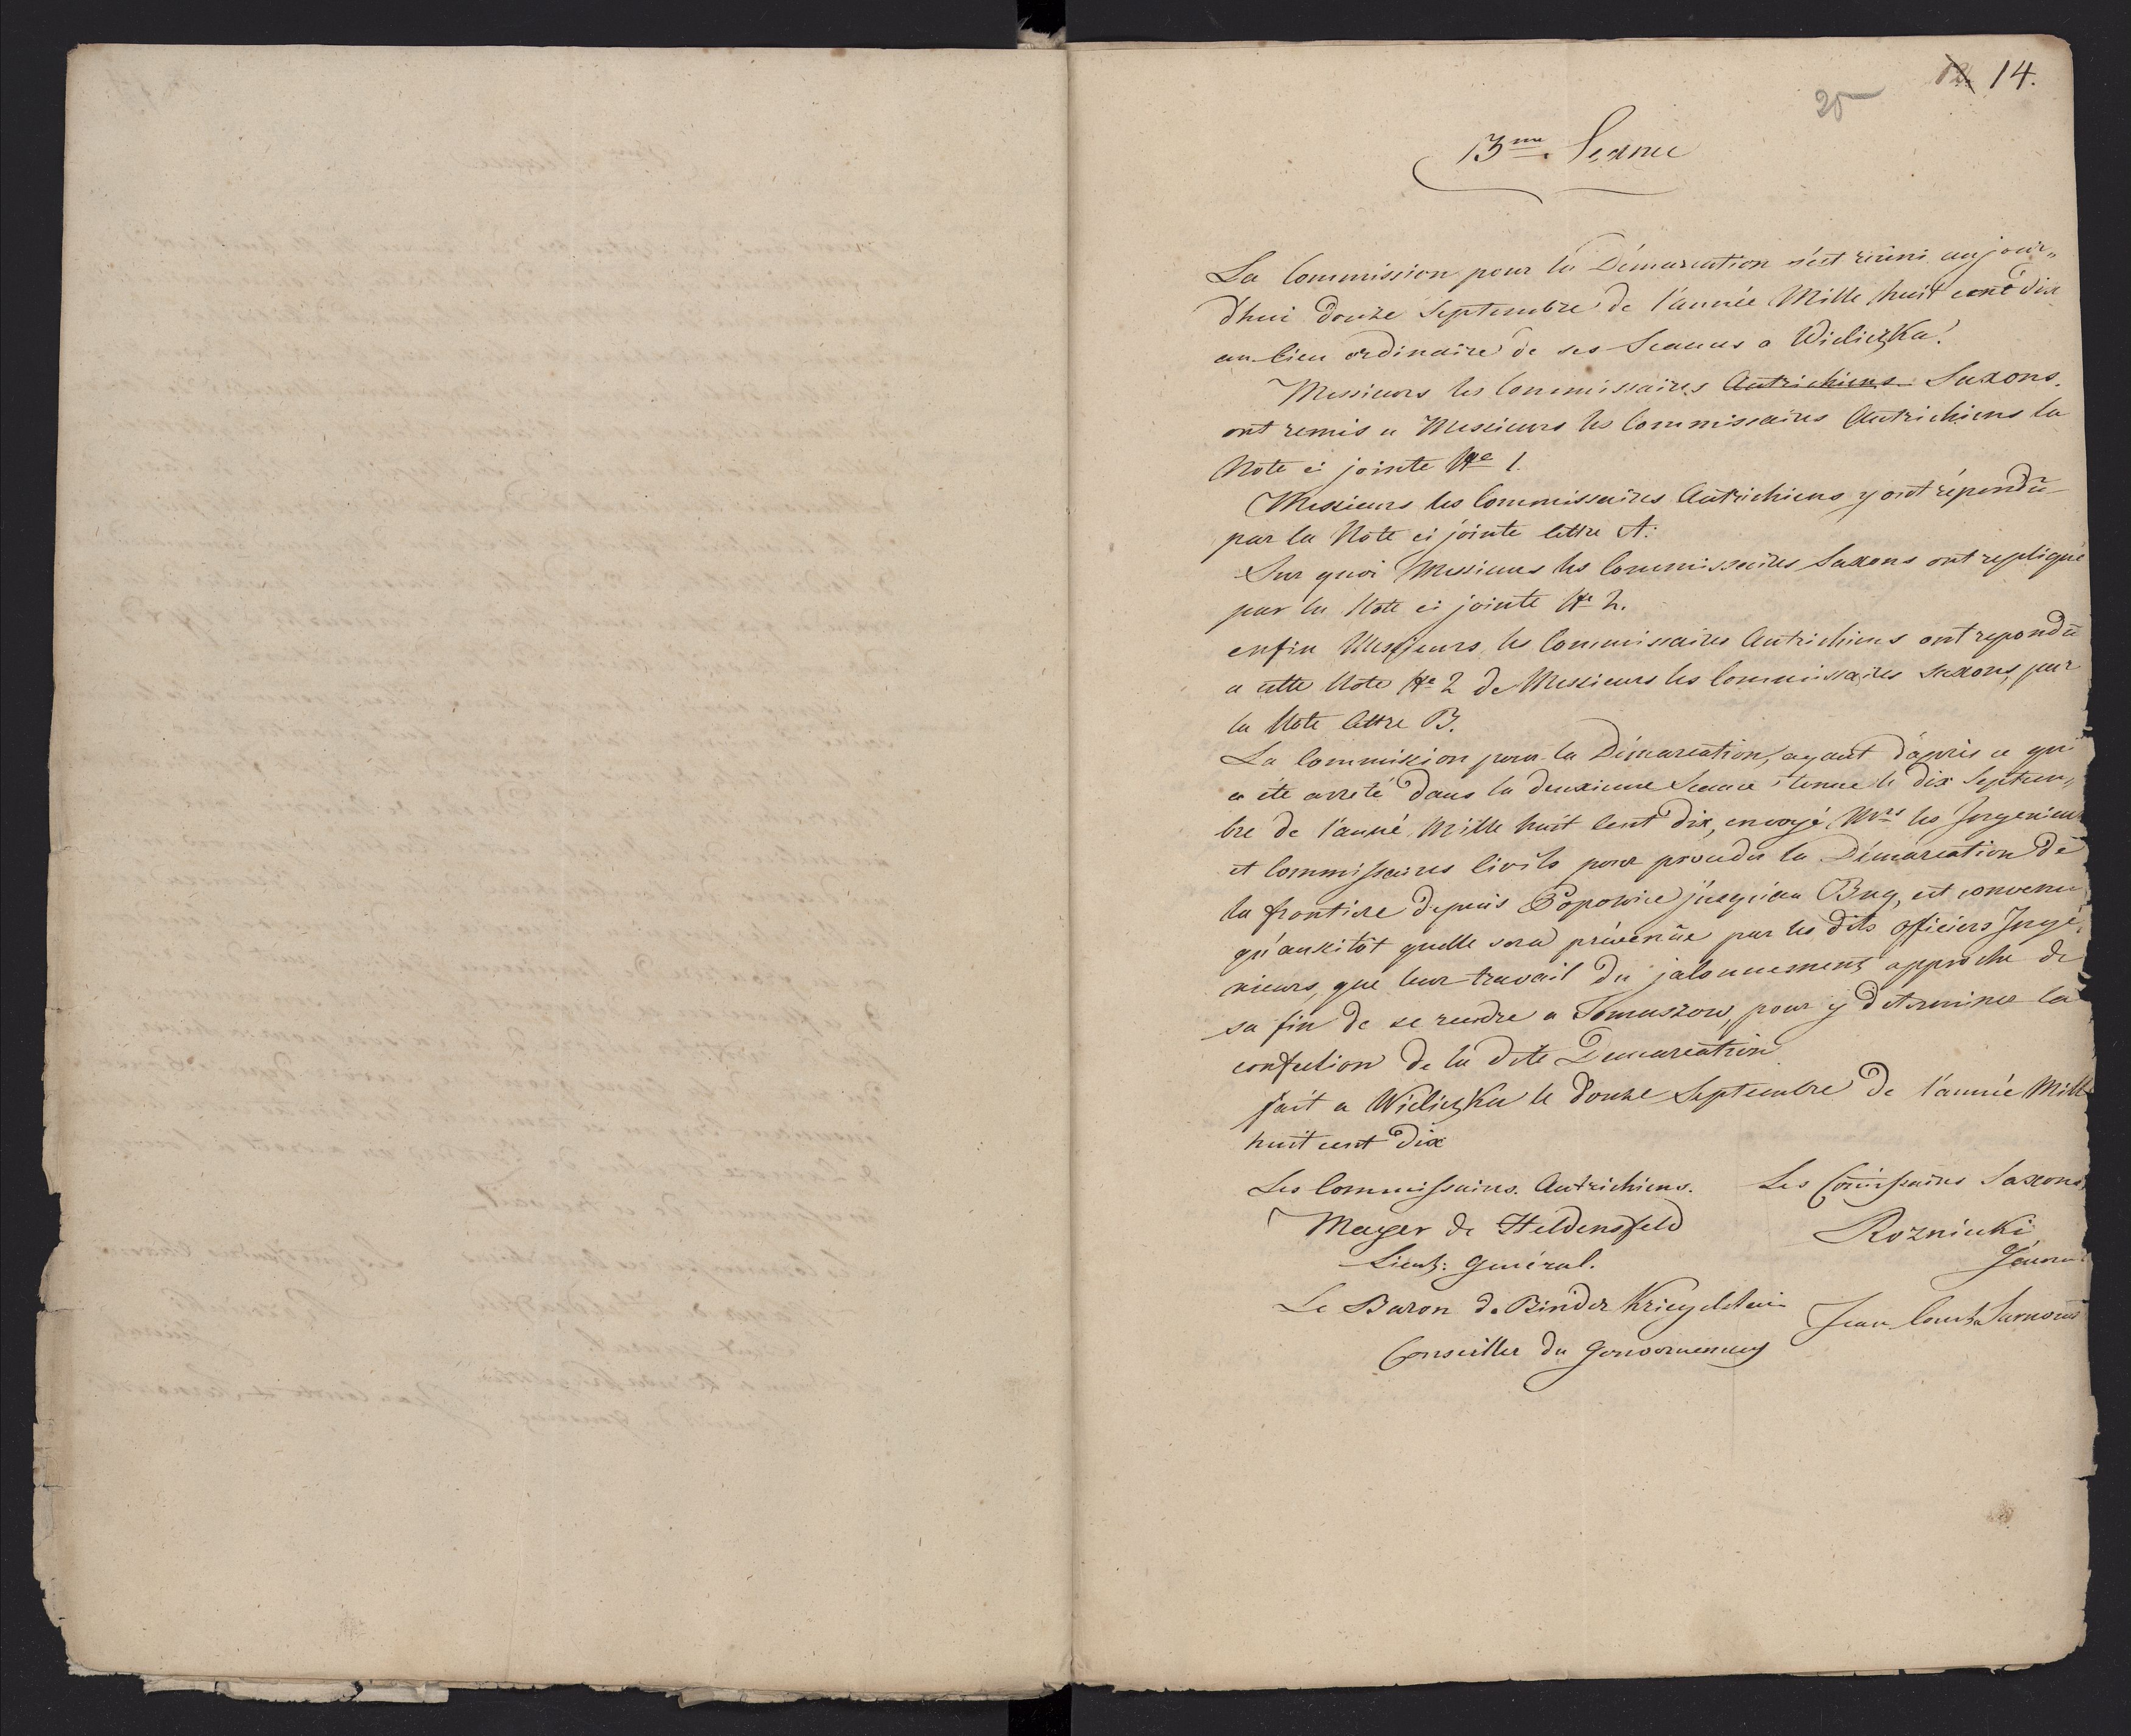 12. 14.
25
13me Seance
La Commission pour la Démarcation s'est reüni aujour„
d'hui douze Septembre de l'année Mille huit cent dix
au lieu ordinaire de ses Seances a Wieliczka.
Messieurs les Commissaires Autrichiens Saxons.
ont remis a Messieurs les Commissaires Autrichiens la
Note ci jointe Nro 1.
Messieurs les Commissaires Autrichiens y ont répondû
par la Note ci jointe lettre A:
Sur quoi Messieurs les Commissaires Saxons ont repliqué
par la Note ci jointe Nro 2.
enfin Messieurs les Commissaires Autrichiens ont repondû
a cette Note Nro 2 de Messieurs les Commissaires Saxons, par
la Note lettre B.
La Commission pour la Démarcation, ayant d'après ce qui
a été arreté dans la deuxieme Seance tenue le dix Septem„
bre de l'anné Mille huit Cent dix, envoyé Mrs les Ingenieurs
et Commissaires Civils pour proceder la Démarcation de
la frontiere depuis Popowice jusqu'au Bug, est convenu
qu'aussitôt quelle sera prévenüe par les dits officiers Ingé„
nieurs, que leur travail du jalonnement approche de
sa fin de se rendre a Tomaszow, pour y determiner la
confection de la dite Demarcation
fait a Wieliczka le douze Septembre de l'année Mille
huit cent dix
Les Commissaires Autrichiens. Les Comissaires Saxons
Mayer de Heldensfeld Rozniecki
Lieut: Général. Géneral
Le Baron de Binder Kriegelstein Jean Comte Tarnows
Conseiller du Gouvernement